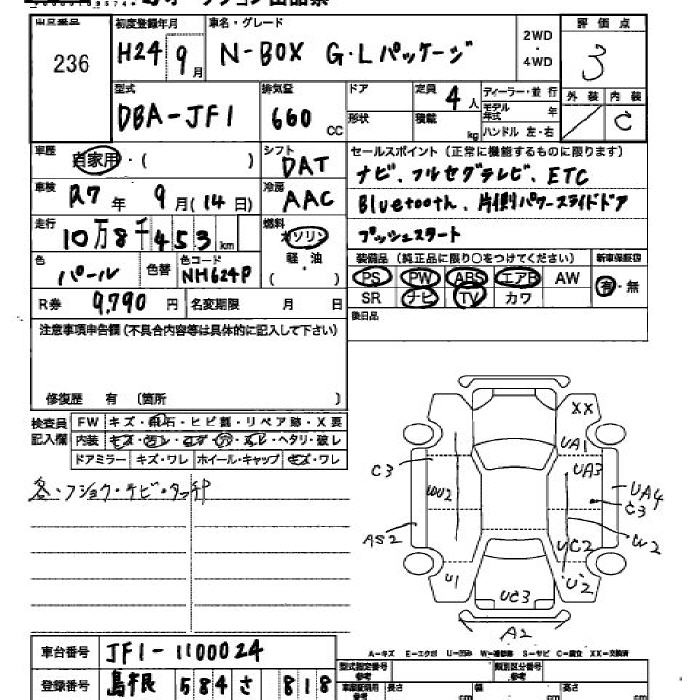 出品番号
236
初度登録年月
H24 9月
車名・グレード
N-BOX G・Lパッケージ
2WD
・
4WD
評価点
3
型式
DBA-JF1
排気量
660 CC
ドア
形状
定員
4人
積載
kg
ディーラー・並行
モデル年式 年
ハンドル 左・右
外装
内装
C
車歴
自家用・( )
シフト
DAT
セールスポイント(正常に機能するものに限ります)
ナビ、フルセグテレビ、ETC
Bluetooth、片側パワースライドドア
プッシュスタート
車検
R7年 9月(14日)
冷房
AAC
走行
10万8千453km
燃料
ガソリン
軽・油
( )
色
パール
色替
色コード
NH624P
装備品(純正品に限り○をつけてください)
新車保証書
PS PW ABS エアB AW
有・無
SR ナビ TV カワ
R券 9,790円
名変期限 月 日
後日品
注意事項申告欄(不具合内容等は具体的に記入して下さい)
修復歴 有 〔箇所 〕
検査員記入欄
FW キズ・飛石・ヒビ割・リペア跡・X要
内装 キズ・コゲ・穴・ヘタリ・破レ
ドアミラー キズ・ワレ ホイール・キャップ キズ・ワレ
XX
UA1
C3
UA3
UA4
C3
WU2
AS2
UC2
W2
U1
U2
UC3
A2
車台番号 JF1-1100024
登録番号 島根 584 さ 818
A-キズ E-エクボ U-凹み W-補修跡 S-サビ C-腐食 XX-交換済
型式指定番号
参考
類別区分番号
参考
車庫証明用
参考
長さ cm
幅 cm
高さ cm